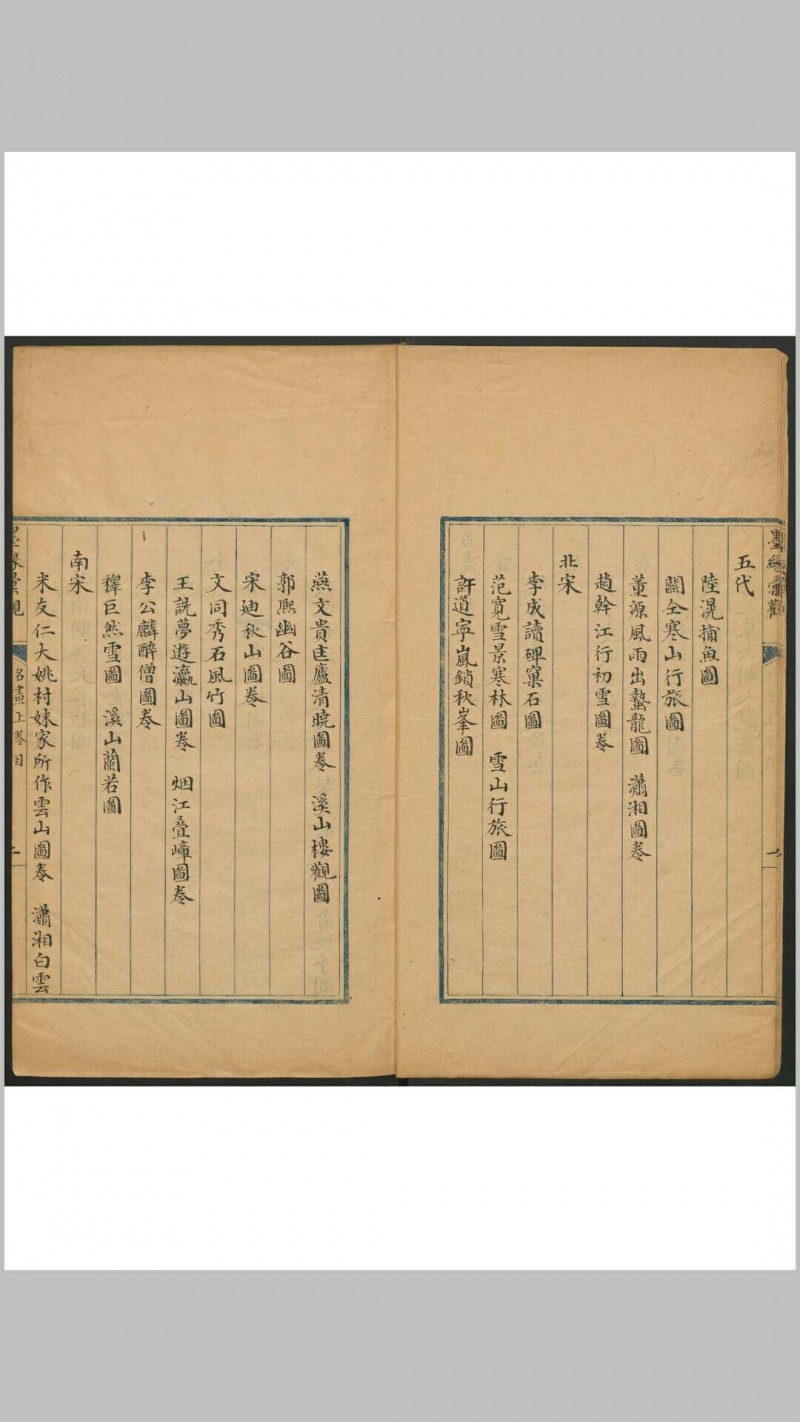 墨緣彙觀
五代
陸滉捕魚圖
關仝寒山行旅圖
董源風雨出蟄龍圖　瀟湘圖卷
趙幹江行初雪圖卷
北宋
李成讀碑窠石圖
范寬雪景寒林圖　雪山行旅圖
許道寧嵐鎖秋峯圖
燕文貴匡廬清曉圖卷　溪山樓觀圖
郭熈幽谷圖
宋迪秋山圖卷
文同秀石風竹圖
王詵夢遊瀛山圖卷　烟江疊嶂圖卷
李公麟醉僧圖卷
釋巨然雪圖　溪山蘭若圖
南宋
米友仁大姚村妹家所作雲山圖卷　瀟湘白雲
墨緣彙觀　名畫上卷目　二